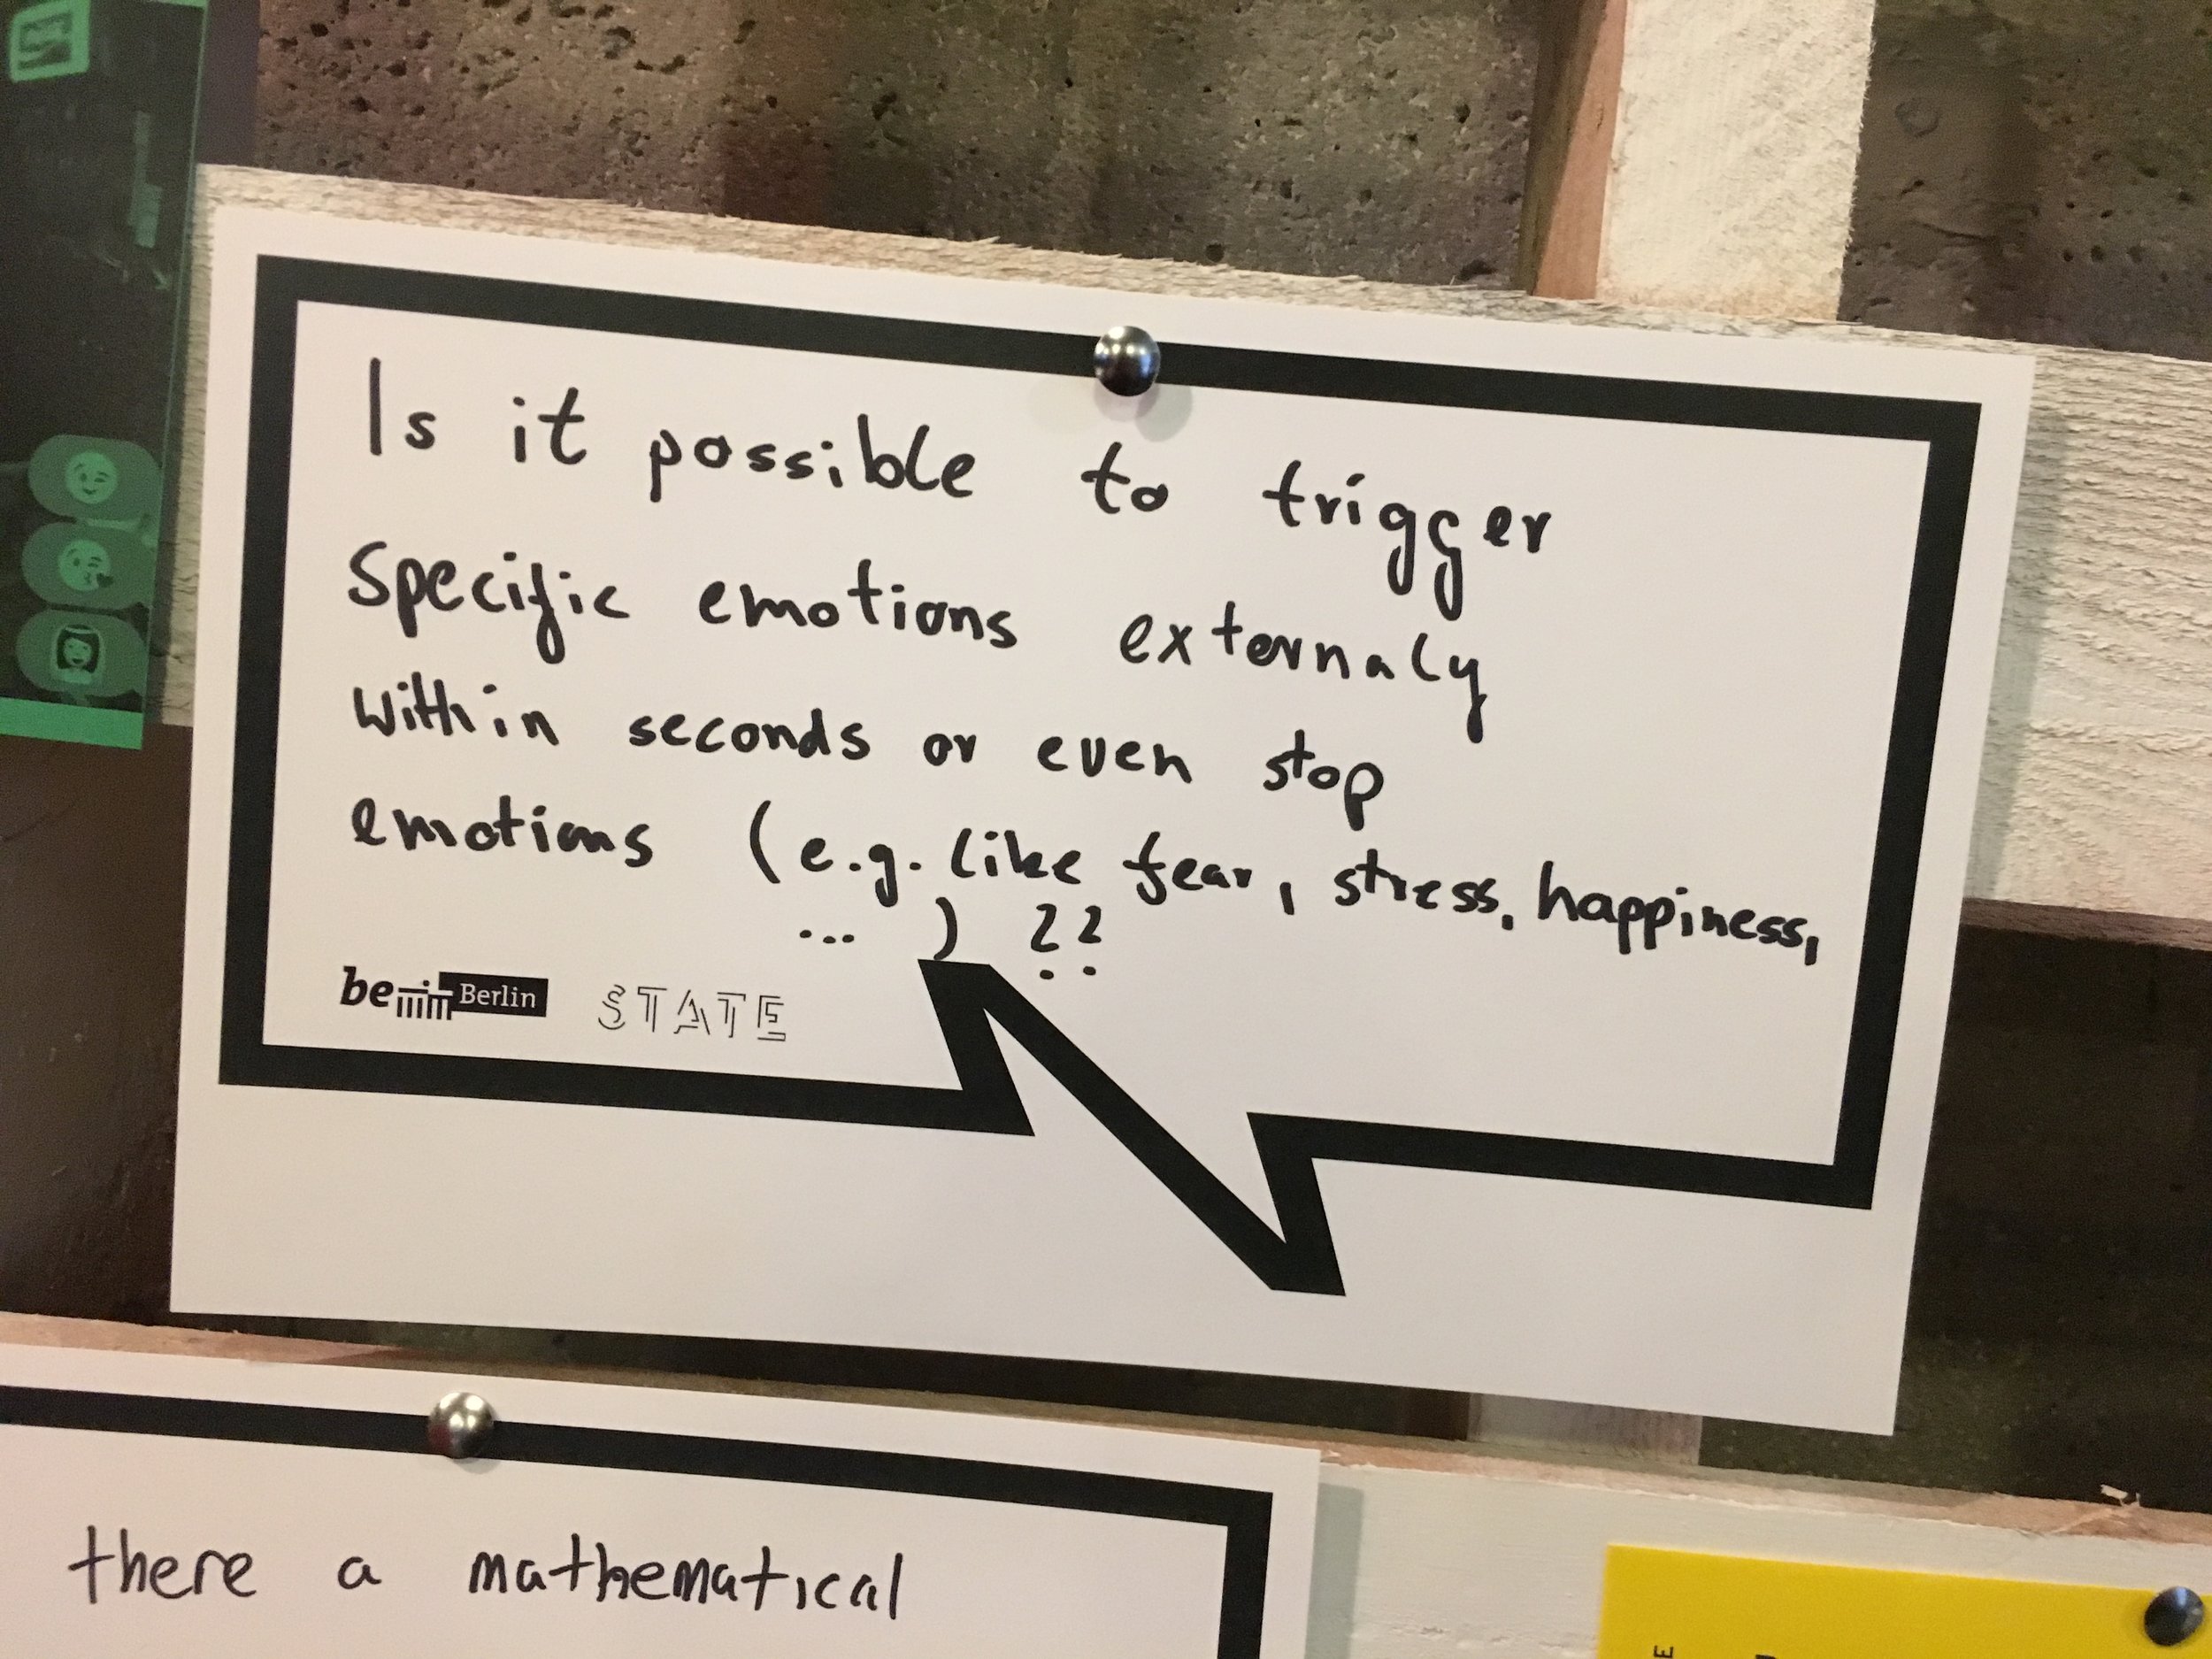 Is it possible to trigger
Specific emotions externaly
within seconds or even stop
emotions (e.g. like fear, stress, happiness,
... ) ??
be Berlin STATE
there a mathematical
E